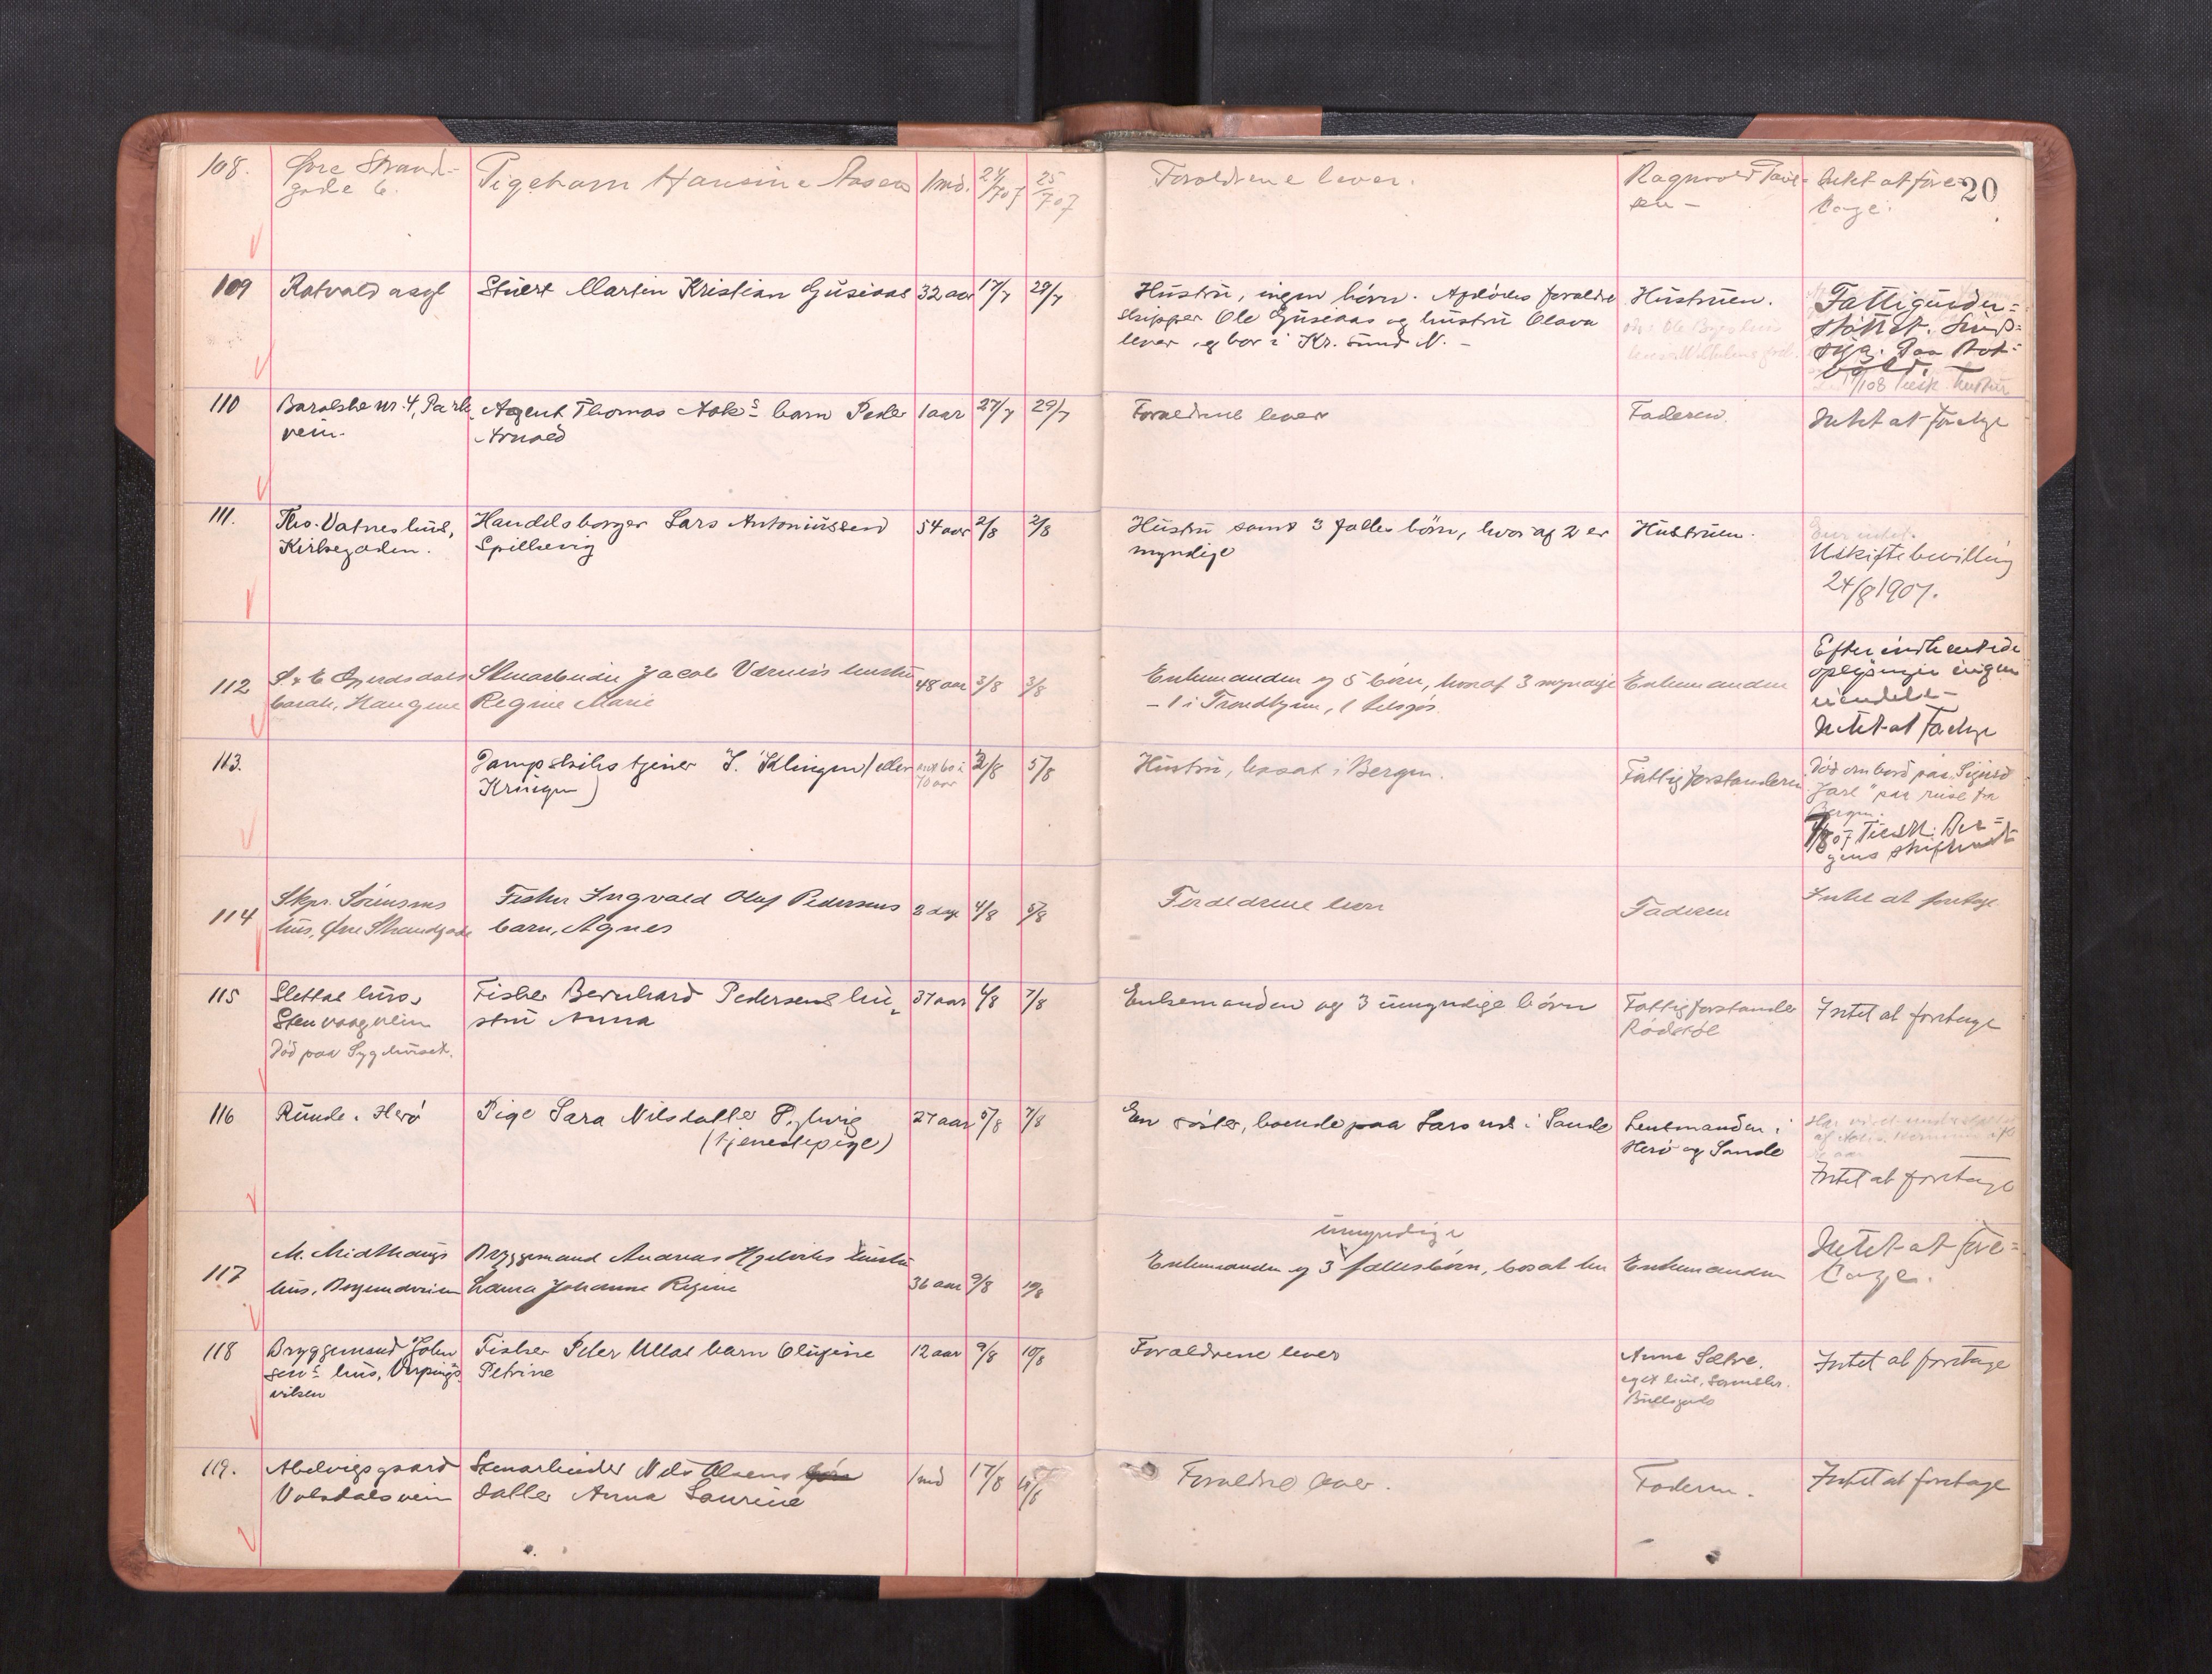 20
108.
Øvre Strand-
gade 6.
Pigebarn Hansine Aasen
1 md.
24/7 07
25/7 07
Forældrene lever.
Ragnvald
Intet at fore-
tage.
109
Rotvold asyl
Stuert Martin Kristian Gusiaas
32 aar
17/7
28/7
Hustru, ingen børn. Afdødes forældre
skipper Ole Gusiaas og hustru Olava
lever og bor i Kr.sund N. -
Hustruen.
Fattigunder-
støttet. Sinds-
syg. Paa Rot-
vold.
110
Barakke nr. 4, Park
vein.
Agent Thomas Aaks barn Peder
Arnold
1 aar
27/7
29/7
Forældrene lever
Faderen.
Intet at foretage
111.
Tho. Vatnes hus,
Kirkegaden.
Handelsborger Lars Antoniussen
Spilkevig
54 aar
2/8
2/8
Hustru samt 3 fælles børn, hvoraf 2 er
myndige
Hustruen.
Uskiftebevilling
24/8 1907.
112
barak, Haugene
Stenarbeider Jacob hustru
Regine Marie
48 aar
3/8
3/8
Enkemanden og 5 børn, hvoraf 3 myndige
- 1 i Trondhjem, 1 tilsjøs.
Enkemanden
Efter indhentede
oplysninger ingen
eiendele -
Intet at foretage
113.
Dampskibstjener J. Klingen (eller
Kringen)
ant. 60 à
70 aar
2/8
5/8
Hustru, bosat i Bergen.
Fattigforstanderen
Død ombord paa "Sigurd
Jarl" paa reise fra
Bergen.
7/8 07 Tilskr. Ber-
gens skifteret
114
Skpr. Sørensens
hus, Øvre Strandgade
Fisker Ingvald Olaf Pedersens
barn, Agnes
2 dage
4/8
5/8
Forældrene lever
Faderen
Intet at foretage
115
Slettas hus,
Stenvaagveien
Død paa Sygehuset.
Fisker Bernhard Pedersens hu-
stru Anna
37 aar
4/8
7/8
Enkemanden og 3 umyndige børn
Fattigforstander
Rødstøl
Intet at foretage
116
Runde i Herø
Pige Sara Nilsdatter
(tjenestepige)
27 aar
5/8
7/8
En søster, boende paa Larsnes i Sande
Lensmanden i
Herø og Sande
Intet at foretage
117
M. Midthaugs
hus, Borgundveien
Bryggemand Andreas Hjelviks hustru
Laura Johanne Regine
36 aar
9/8
10/8
umyndige
Enkemanden og 3 fællesbørn, bosat her
Enkemanden
Intet at fore-
tage.
118
Bryggemand John
sens hus, Verpings
viken
Fisker Peter Ullas barn Olufine
Petrine
12 aar
9/8
10/8
Forældrene lever
Anne Sætre.
eget hus,
Bullsgade
Intet at foretage
119.
Abelvigsgaard
Volsdalsvein
Stenarbeider Nils Olsens
datter Anna Laurine
1 md
17/8
Forældre lever.
Faderen.
Intet at foretage